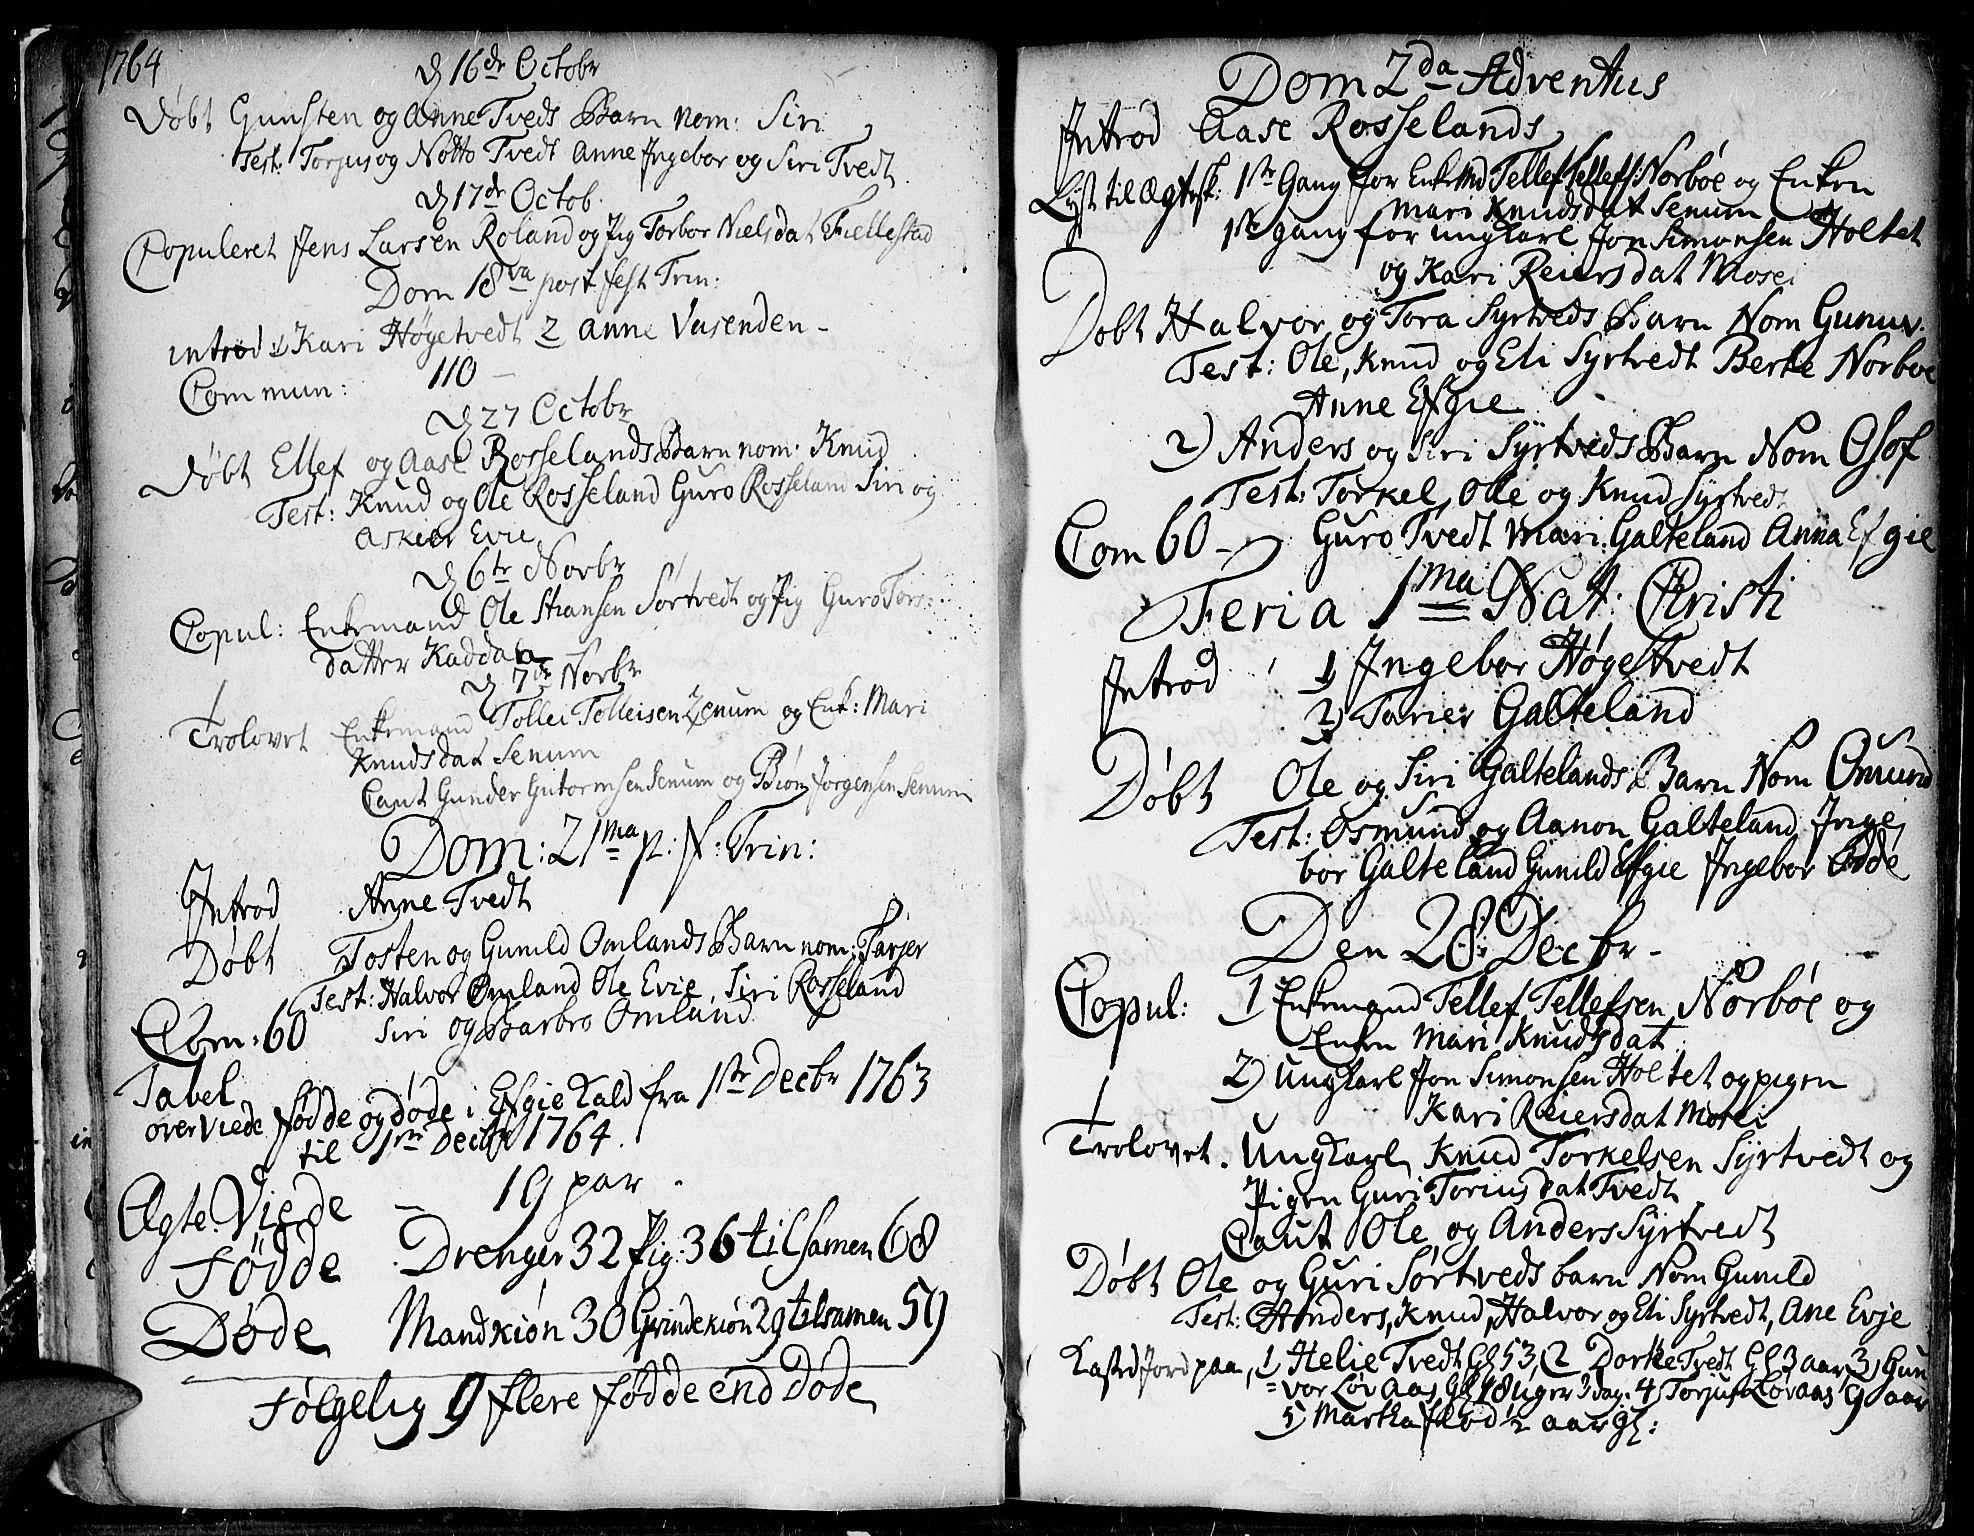 1764
D 16de Octobr
Døbt Gunsten og Anne Tveds Barn nom: Siri
Test: Torjus og Notto Tvedt Anne Ingebor og Siri Tvedt.
D 17de Octob.
Copuleret Jens Larsen Roland og Pig Torbor Nielsdat Fiellestad
Dom 18va post fest Trin:
introd 1 Kari Høgetvedt 2 Anne Vasenden -
Commun: 110 -
D 27 Octobr
Døbt Ellef og Aase Rosselands Barn nom: Knud
Test: Knud og Ole Rosseland Guro Rosseland Siri og
Askier Evie
D 6te Novbr
Copul: Enkemand Ole Hansen Sørtvedt og Pig Guro Tors:
datter Kaddan
D 7de Novbr
Trolovet Enkemand Tollei Tolleisen Senum og Enk: Mari
Knudsdat Senum
Caut Gunder Gutormsen Senum og Biørn Jorgensen Senum
Dom: 21ma p: f: Trin:
Introd Anne Tvedt
Døbt Tosten og Gunild Omlands Barn nom: Tarjer
Test: Halvor Omland Ole Evie, Siri Rosseland
Com: 60 Siri og Barbro Omland
Tabel
over Viede fødde og døde i Efgie Kald fra 1ste Decbr 1763
til 1ste Decbr 1764.
Ægte Viede - 19 par.
Födde Drenger 32 Pig: 36 tilsamen 68
Døde Mandkiøn 30 Qvindekiøn 29 tilsamen 59
Følgelig 9 flere fødde end Døde
Dom 2da Adventus
Introd Aase Rosselands
Lyst til Ægtesk: 1ste Gang for Enkemd Tellef Tellefs: Norbøe og Enken
Mari Knudsdat Senum
1ste gang for ungkarl Jon Simonsen Holtet
og Kari Reiersdat Mosei
Døbt Halvor og Tora Syrtveds Barn Nom Gunuv.
Test: Ole, Knud og Eli Syrtvedt Berte Norboe
Anne Efgie
2) Anders og Siri Syrtveds Barn Nom Osof
Test: Torkel, Olle og Knud Syrtvedt
Com 60 - Guro Tvedt Mari Galteland Anna Efgie
Feria 1ma Nat: Christi
Introd 1) Ingebor Høgetvedt
2) Tarier Galteland
Døbt Ole og Siri Galtelands Barn Nom Omund
Test: Osmund og Aanon Galteland, Inge
bor Galteland Gunild Efgie Ingebor Odde
Den 28: Decbr -
Copul: 1 Enkemand Tellef Tellefsen Norbøe og
Enken Mari Knudsdat
2) Ungkarl Jon Simonsen Holtet og pigen
Kari Reiersdat Mosei
Trolovet. Ungkarl Knud Torkelsen Syrtvedt og
Pigen Guri Torius dat Tvedt
Caut Ole og Anders Syrtvedt
Døbt Ole og Guri Sørtveds barn Nom Gunild
Test: Anders, Knud, Halvor og Eli Syrtvedt, Ane Evje
Kasted Jord paa, 1 Helie Tvedt Gl 53, 2 Dorte Tvedt Gl 3 aar 3, Gun
vor Løv Aas Gl 18 uger 3 dag. 4 Torjus Løvaas 9 aar
5) Martha Flod ½ aar gl: